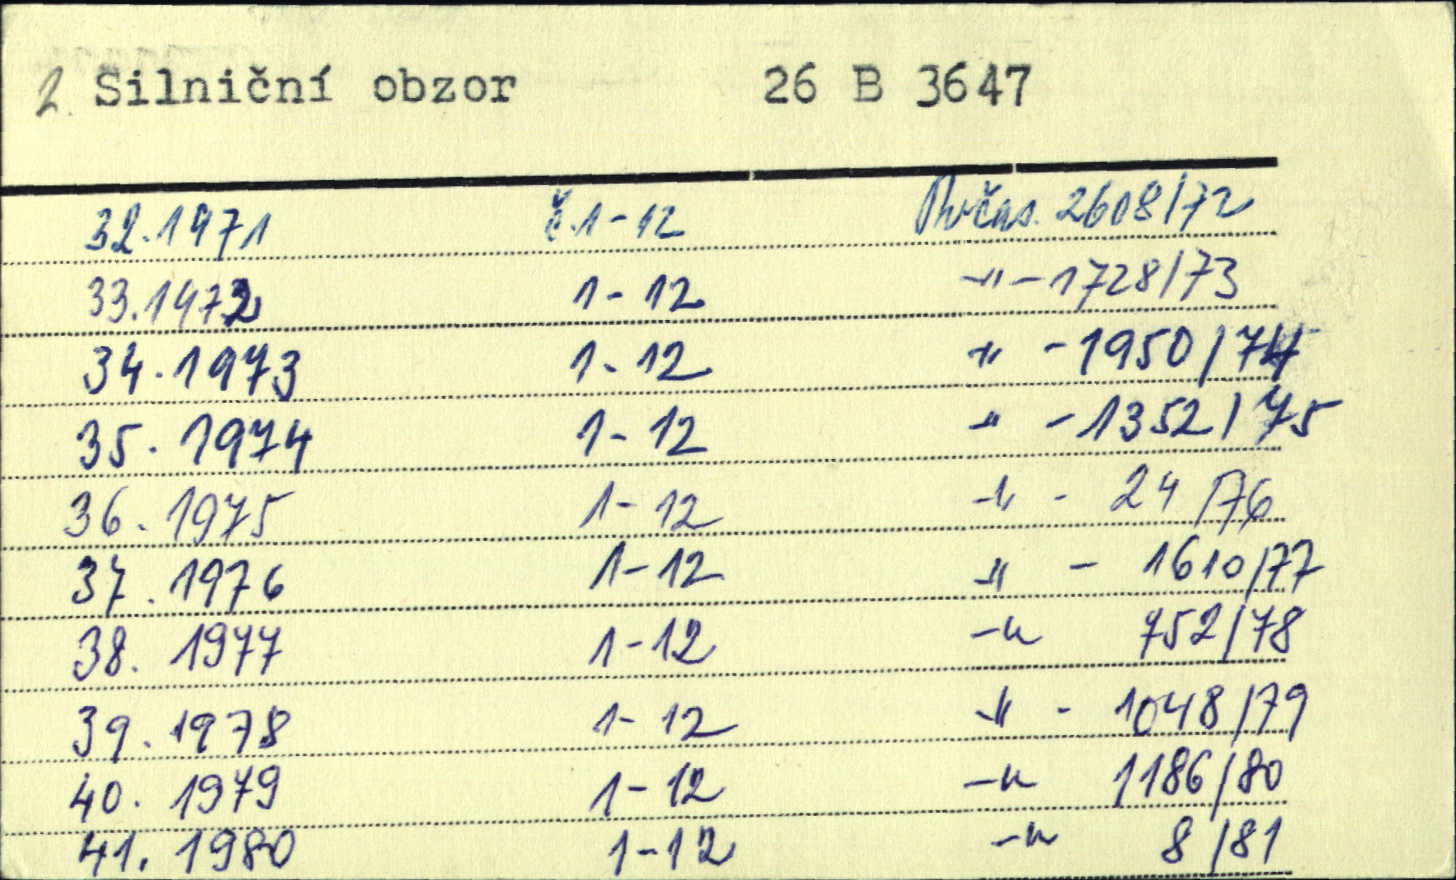 2. Silniční obzor 26 B 3647
32.1971 č.1-12 Pvčas. 2608/72
33.1972 1-12 -"- 1728/73
34.1973 1-12 " - 1950/74
35.1974 1-12 " - 1352/75
36.1975 1-12 -"- 24/76
37.1976 1-12 " - 1610/77
38.1977 1-12 -" 752/78
39.1978 1-12 -"- 1048/79
40.1979 1-12 -" 1186/80
41.1980 1-12 -" 8/81